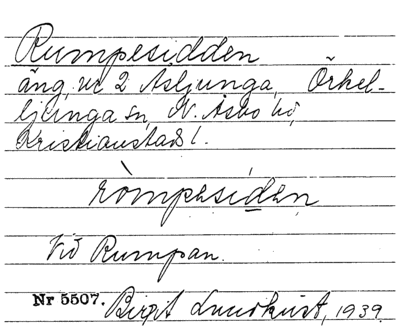 Rumpesidden
äng, nr 2 Åsljunga, Örkel-
ljunga sn, N. Åsbo hd,
Kristianstads l.
ròmpesiden
Vid Rumpan.
Nr 5507. Birgit Lundkvist, 1939